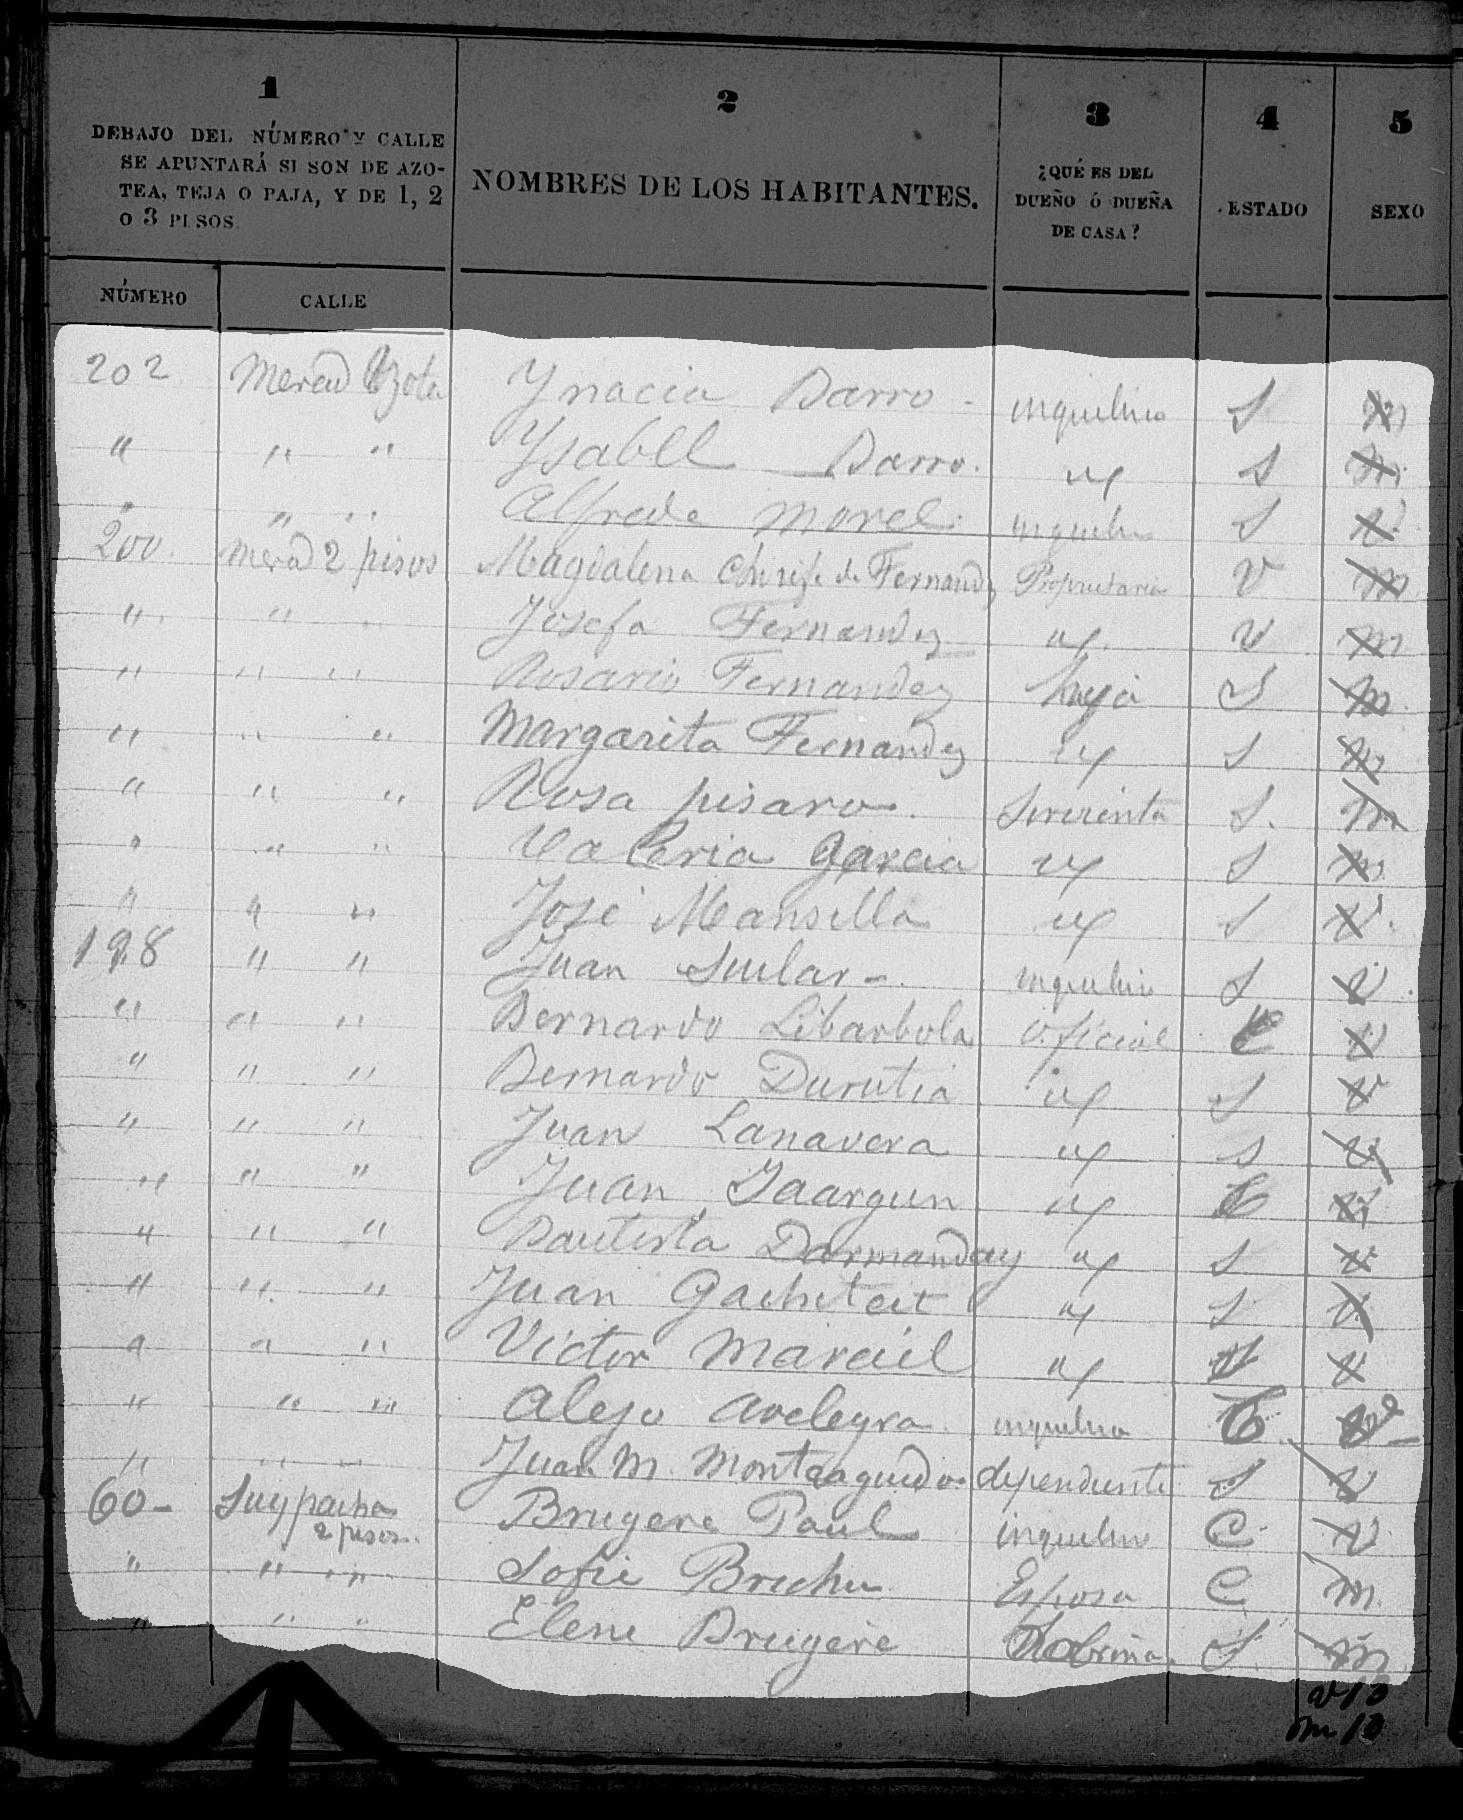 1 2 3 4 5
DEBAJO DEL NÚMERO Y CALLE
SE APUNTARÁ SI SON DE AZO-
TEA, TEJA O PAJA, Y DE 1, 2
O 3 PISOS
NOMBRES DE LOS HABITANTES.
¿QUÉ ES DEL
DUEÑO Ó DUEÑA
DE CASA?
ESTADO
SEXO
NÚMERO CALLE
202 Ynacia Barro inquilino S m
" " " Ysabell Barro. S m
" " " Alfredo Morel S V
200. 2 pisos Magdalena de Fernandz Propietaria V m
" " " Josefa Fernandez V m
" " " Rosario Fernandez hija S m
" " " Margarita Fernandez S m
" " " Rosa pisaro. Sirvienta S. m
" " " Valeria Garcia S m
" " " José Mansilla S V
198 " " Juan inquilino S V
" " " Bernardo Libarbola Oficial C V
" " " Bernardo Durutia S V
" " " Juan Lanavera S V
" " " Juan C V
" " " Bautista Darmanday S V
" " " Juan Gachiteit S V
" " " Victor Marcail S V
" " " Alejo Aveleyra inquilino C V
" " " Juan M. Monteagudo dependiente S V
60- Suypacha Brugere Paul inquilino C V
2 pisos.
" " " Sofie Esposa C m
" " " Elene Brugere Sobrina. S m
V 13
m 10